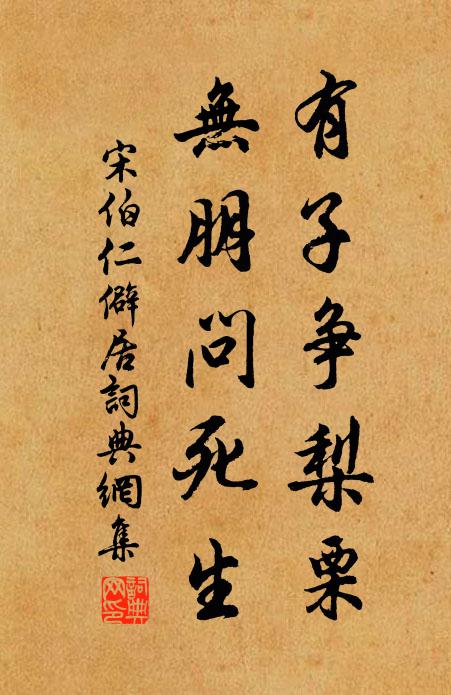 有子争梨栗
無朋問死生
宋伯仁僻居詞典網集
詞典網印